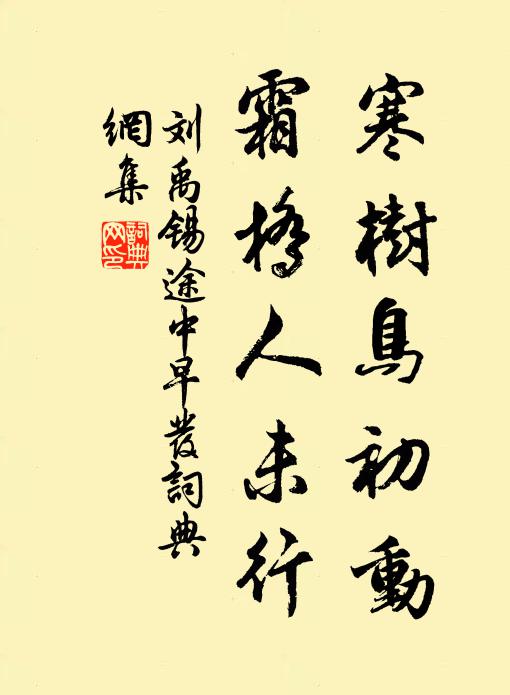 寒樹鳥初動
霜橋人未行
刘禹錫途中早發詞典
網集
詞典
网印